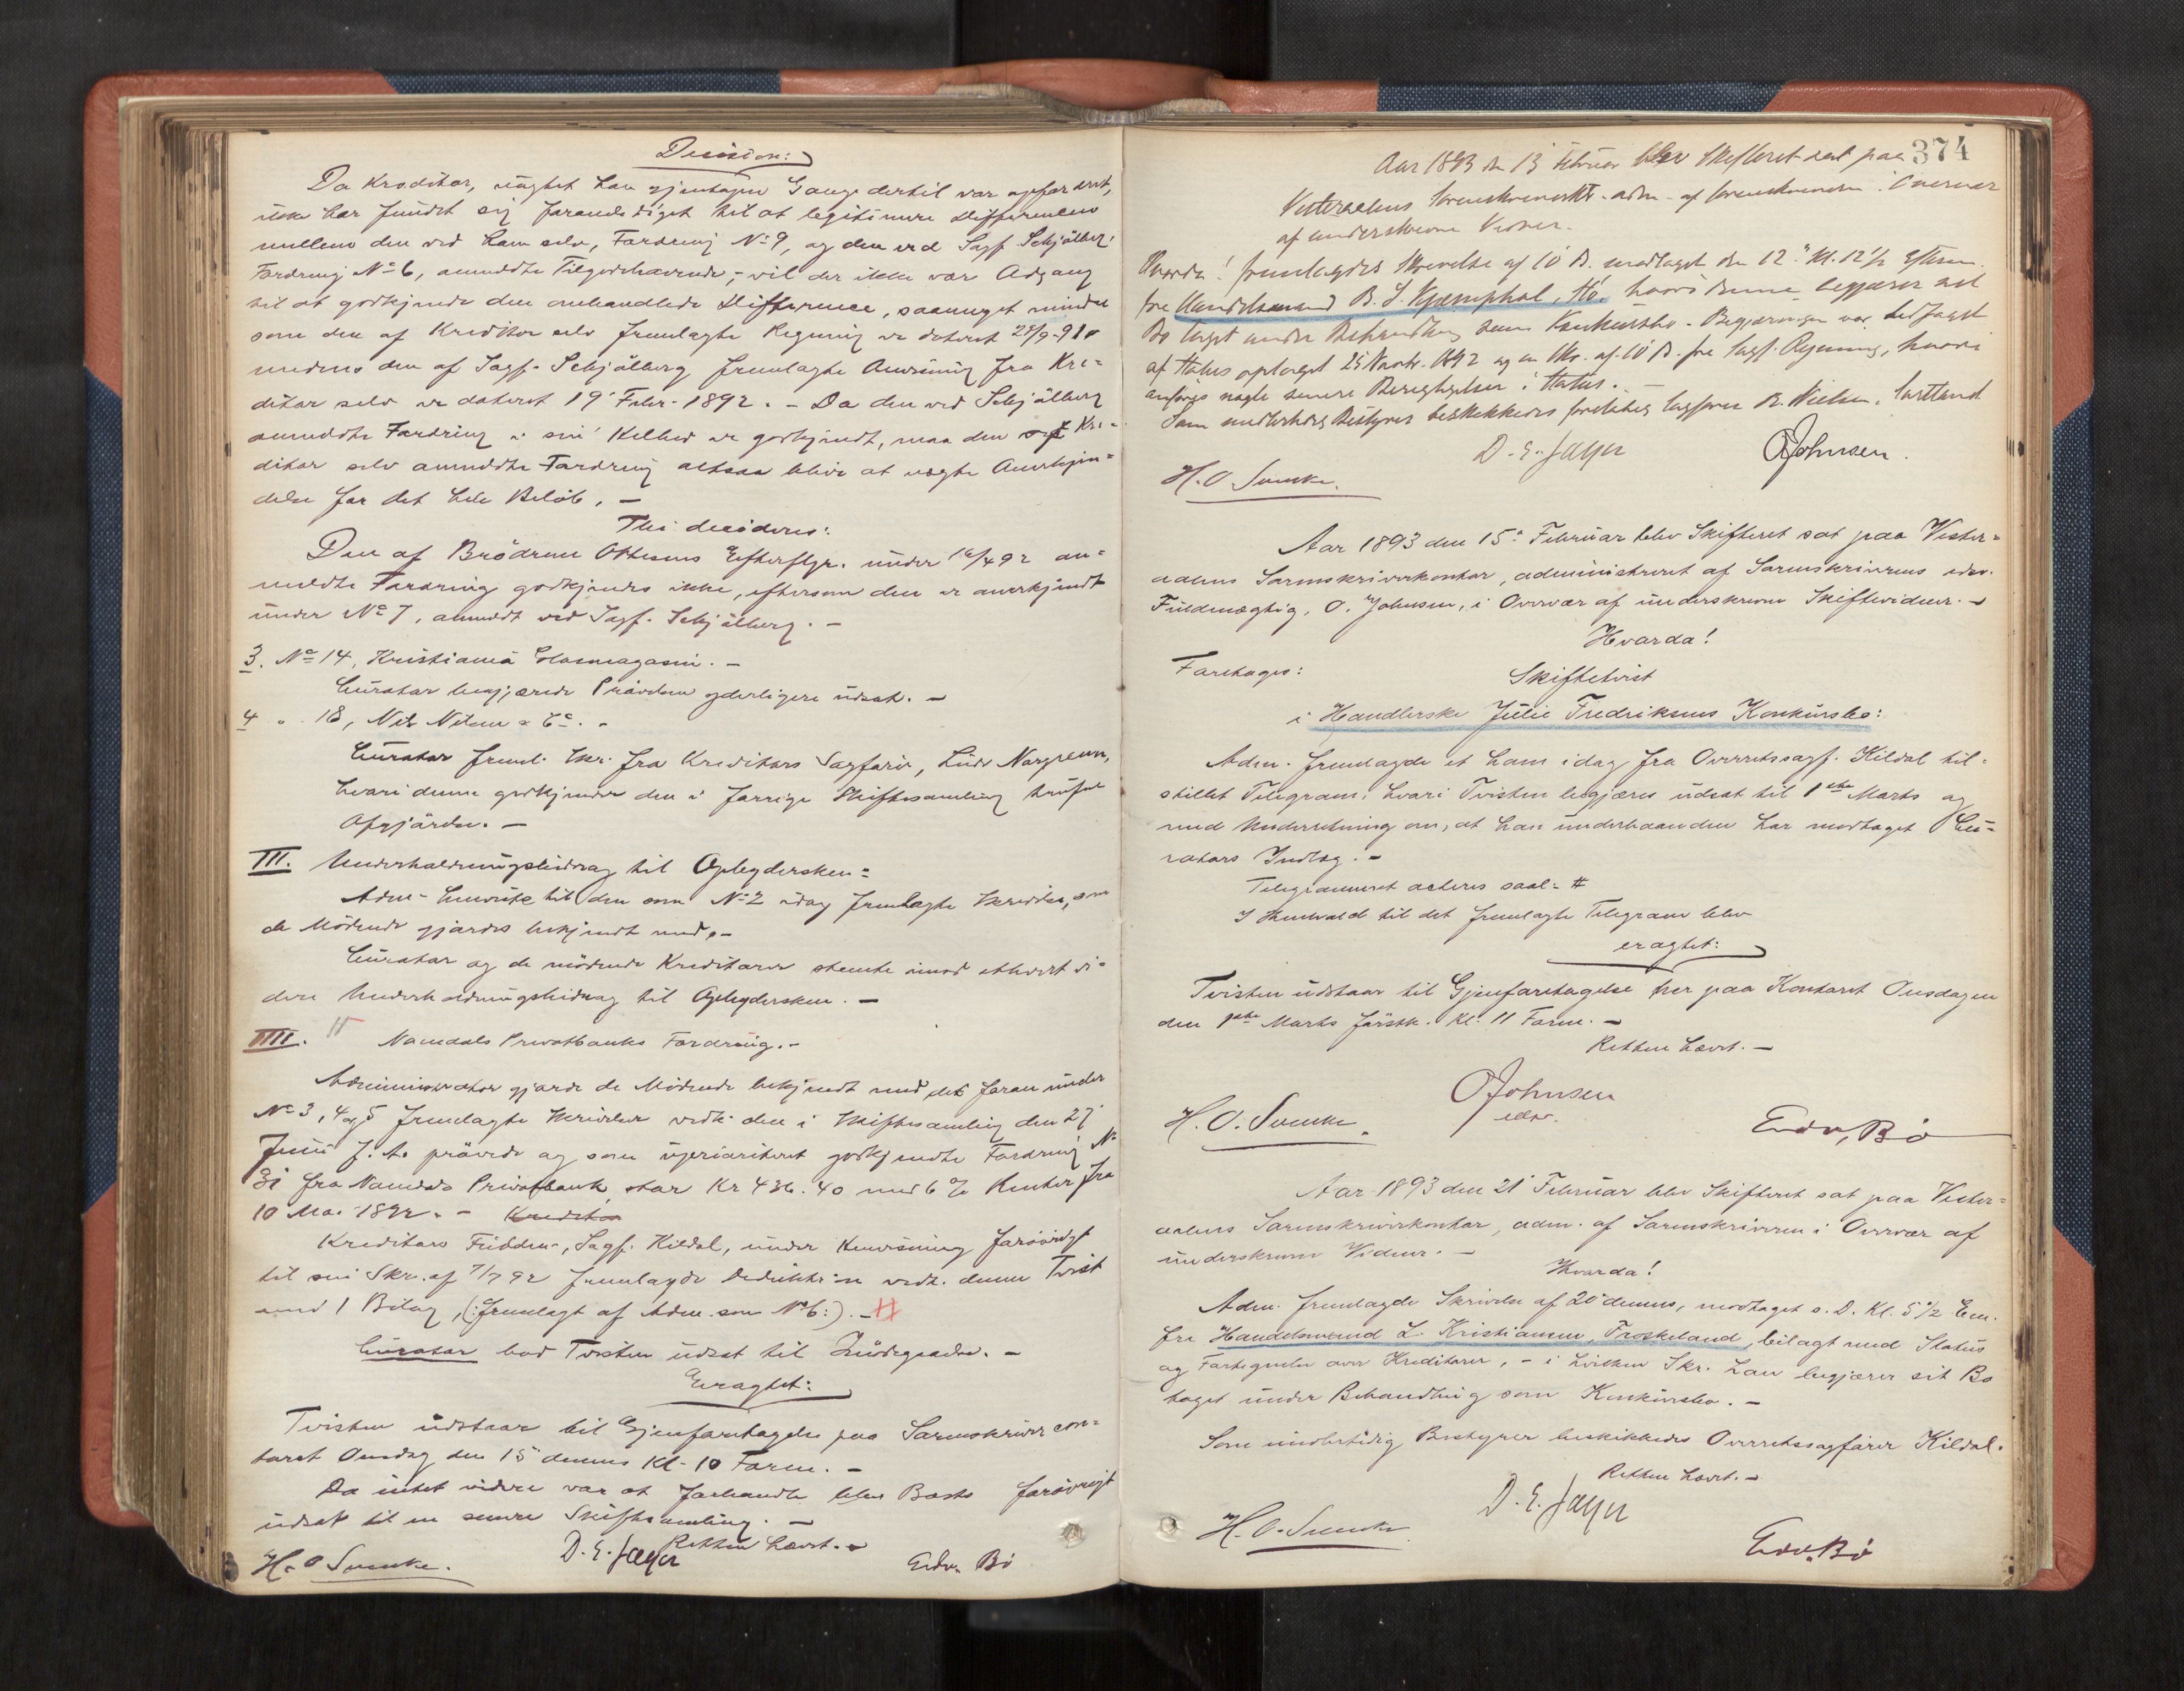 Decision:
Da Kreditor, uagtet han gjentagne Gange dertil var opfordret,
ikke har fundet sig foranlediget til at legitimere Differencen
mellem den ved ham selv, Fordring No 9, og den ved Sagf. Schjölberg,
Fordring No 6, anmeldte Tilgodehavende, vil der ikke være Adgang
til at godkjende den omhandlede Difference, saameget mindre
som den af Kreditor selv fremlagte Regning er dateret 28/9-91
medens den af Sagf. Schjölberg fremlagte Anvisning fra Kre-
ditor selv er dateret 19' Febr. 1892. - Da den ved Schjölberg
anmeldte Fordring i sin Helhed er godkjendt, maa den af Kre-
ditor selv anmeldte Fordring altsaa blive at negte Anerkjen-
delse for det hele Beløb. -
Thi decideres:
Den af Brödrene Ottesens Efterflgr. under 16/4 92 an-
meldte Fordring godkjendes ikke, eftersom den er anerkjendt
under No 7, anmeldt ved Sagf. Schjölberg. -
3. No 14, Kristiania Glasmagasin. -
Curator begjærede Prövelsen yderligere udsat. -
4 " 18, Nils Nilsen & Co. -
Curator freml. Skr. fra Kreditors Sagförer, Ludv Norgreen,
hvori denne godkjender den i forrige Skiftesamling trufne
Afgjörelse. -
III. Underholdningsbidrag til Opbydersken:
Adm. henviste til den som No 2 idag fremlagte Skrivelse, som
de Mödende gjordes bekjendt med. -
Curator og de mödende Kreditorer stemte imod ethvert vi-
dere Underholdningsbidrag til Opbydersken. -
IIII. # Namdals Privatbanks Fordring. -
Administrator gjorde de Mödende bekjendt med de foran under
No 3, 4 og 5 fremlagte Skrivelser vedk. den i Skiftesamling den 27'
Juni f. A. prövede og som uprioriteret godkjendte Fordring No
31 fra Namdals Privatbank, stor Kr 436.40 med 6 % Renter fra
10 Mai 1892. - Kreditor
Kreditors Fuldm., Sagf. Kildal, under Henvisning forövrigt
til sin Skr. af 7/7 92 fremlagde Deduktion vedk. denne Tvist
med 1 Bilag, (: fremlagt af Adm. som No 6:). - #
Curator bad Tvisten udsat til Imödegaaelse. -
Eragtet:
Tvisten udstaar til Gjenforetagelse paa Sorenskriver con-
toret Onsdag den 15' dennes Kl. 10 Form. -
Da intet videre var at forhandle blev Boets forövrigt
udsat til en senere Skiftesamling. -
Retten hævet. -
H. O Svenke. D. E. Jæger Edv. Bö
374
Aar 1893 den 13' Februar blev Skifteret sat paa
Vesteraalens Sorenskriverktr. adm. af Sorenskriveren i Overvær
af underskrevne Vidner.
Hvorda! fremlagdes Skrivelse af 10' ds. modtaget den 12" Kl. 12 1/2 Efterm.
fra Handelsmand B. L. Kjæmphol, Stö, hvori denne begjærer sit
Bo taget under Behandling som Konkursbo. - Begjæringen var ledsaget
af Status optaget 25 Novbr. 1892 og en Skr. af 10' ds. fra Sagf. Rynning, hvori
anföres nogle senere Berigtigelser i Status. -
Som midlertidig Bestyrer beskikkedes foreløbig Sagförer R. Nielsen, Sortland
D. E. Jæger OJohnsen.
H. O Svenke.
Aar 1893 den 15' Februar blev Skifteret sat paa Vester-
aalens Sorenskriverkontor, administreret af Sorenskriverens edsv.
Fuldmægtig, O. Johnsen, i Overvær af underskrevne Skiftevidner. -
Hvorda!
Foretoges: Skiftetvist
i Handlerske Julie Fredriksens Konkursbo:
Adm. fremlagde et ham idag fra Overretssagf. Kildal til-
stillet Telegram, hvori Tvisten begjæres udsat til 1ste Marts og
med Underretning om, at han underhaanden har modtaget Cu-
rators Indlæg. -
Telegrammet acteres saal: #
I Henhold til det fremlagte Telegram blev
eragtet:
Tvisten udstaar til Gjenforetagelse her paa Kontoret Onsdagen
den 1ste Marts førstk. Kl. 11 Form. -
Retten hævet. -
OJohnsen
edsv.
H. O. Svenke. Edv. Bö
Aar 1893 den 21' Februar blev Skifteret sat paa Vester-
aalens Sorenskriverkontor, adm. af Sorenskriveren i Overvær af
underskrevne Vidner. -
Hvorda!
Adm. fremlagde Skrivelse af 20' dennes, modtaget s. D. Kl. 5 1/2 Em.
fra Handelsmand L. Kristiansen, Froskeland, bilagt med Status
og Fortegnelse over Kreditorer, - i hvilken Skr. han begjærer sit Bo
taget under Behandling som Konkursbo. -
Som midlertidig Bestyrer beskikkedes Overretssagförer Kildal.
Retten hævet. -
D. E. Jæger
H. O. Svenke Edv. Bö